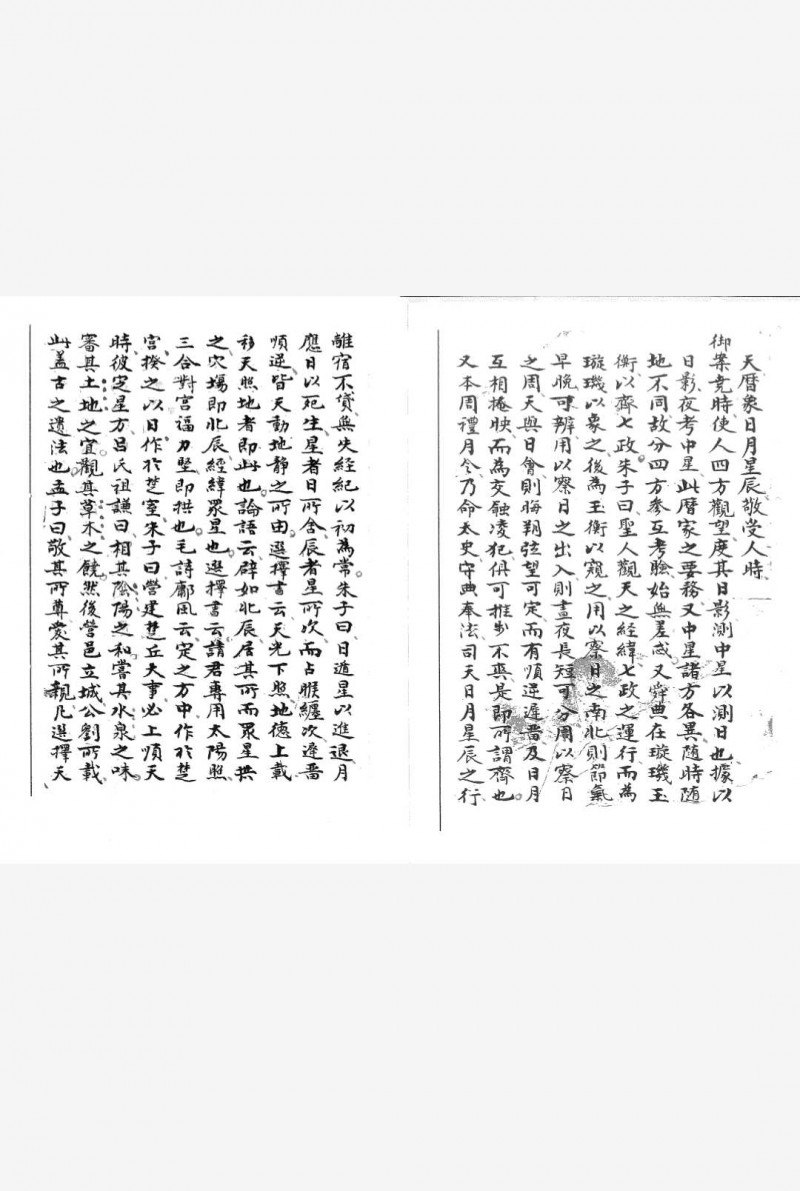 天曆象日月星辰敬受人時
御案堯時使人四方觀望度其日影測中星以測日也據以
日影夜考中星此曆家之要務又中星諸方各異随時随
地不同故分四方叅互考驗始無差忒又舜典在璇璣玉
衡以齊七政朱子曰聖人觀天之經緯七政之運行而為
璇璣以象之後為玉衡以窺之用以察日之南北則節氣
早晚可辨用以察日之出入則晝夜長短可分用以察日
之周天與日會則晦朔弦望可定而有順逆遲晋及日月
互相掩映而為交蝕凌犯俱可推步不爽是即所謂齊也
又本周禮月令乃命太史守典奉法司天日月星辰之行
離宿不貸無失經紀以初為常朱子曰日道星以進退月
應日以死生星者日所舍辰者星所次而占睺纏次遲晋
順逆皆天動地静之所由選擇書云天光下照地德上載
移天照地者即此也論語云辟如北辰居其所而眾星拱
之穴塲即北辰經緯眾星也選擇書云請君專用太陽照
三合對宮福力堅即拱也毛詩鄘風云定之方中作於楚
宫揆之以日作於楚室朱子曰營建楚丘大事必上順天
時彼定星方吕氏祖謙曰相其陰陽之和嘗其水泉之味
審其土地之宜觀其草木之饒然後營邑立城公劉所載
此盖古之遺法也孟子曰敬其所尊愛其所親凡選擇天